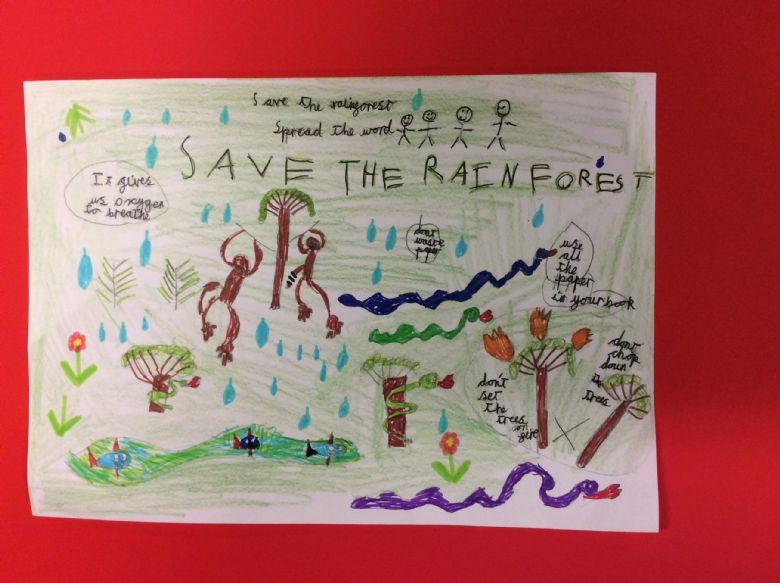 Save the rainforest
Spread the word
SAVE THE RAINFOREST
It gives
us oxygen
to breathe
dont
waste
use
all
the
paper
in your book
don't
set
the
trees
on
fire
dont
chop
down
trees